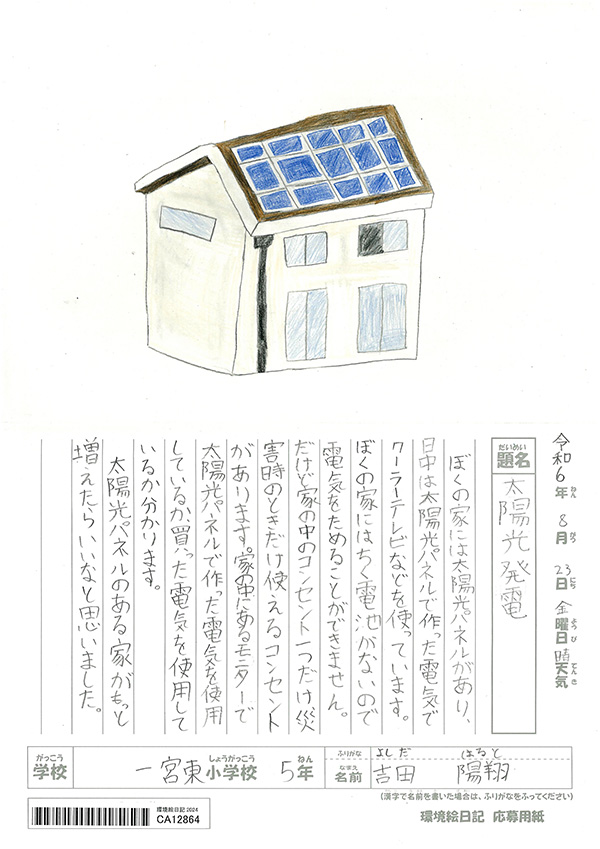 令和6年 8月 23日 金曜日 天気 晴
ねん がつ にち よう び てんき
だいめい
題名
太陽光発電
ぼくの家には太陽光パネルがあり、
日中は太陽光パネルで作った電気で
クーラーテレビなどを使っています。
ぼくの家にはちく電池がないので
電気をためることができません。
だけど家の中のコンセント一つだけ災
害時のときだけ使えるコンセント
があります。家の中にあるモニターで
太陽光パネルで作った電気を使用
しているか、買った電気を使用して
いるか分かります。
太陽光パネルのある家がもっと
増えたらいいなと思いました。
がっこう しょうがっこう ねん
学校 一宮東小学校 5年
ふりがな よしだ はると
なまえ
名前 吉田 陽翔
(漢字で名前を書いた場合は、ふりがなをふってください)
環境絵日記 2024
CA12864
環境絵日記 応募用紙